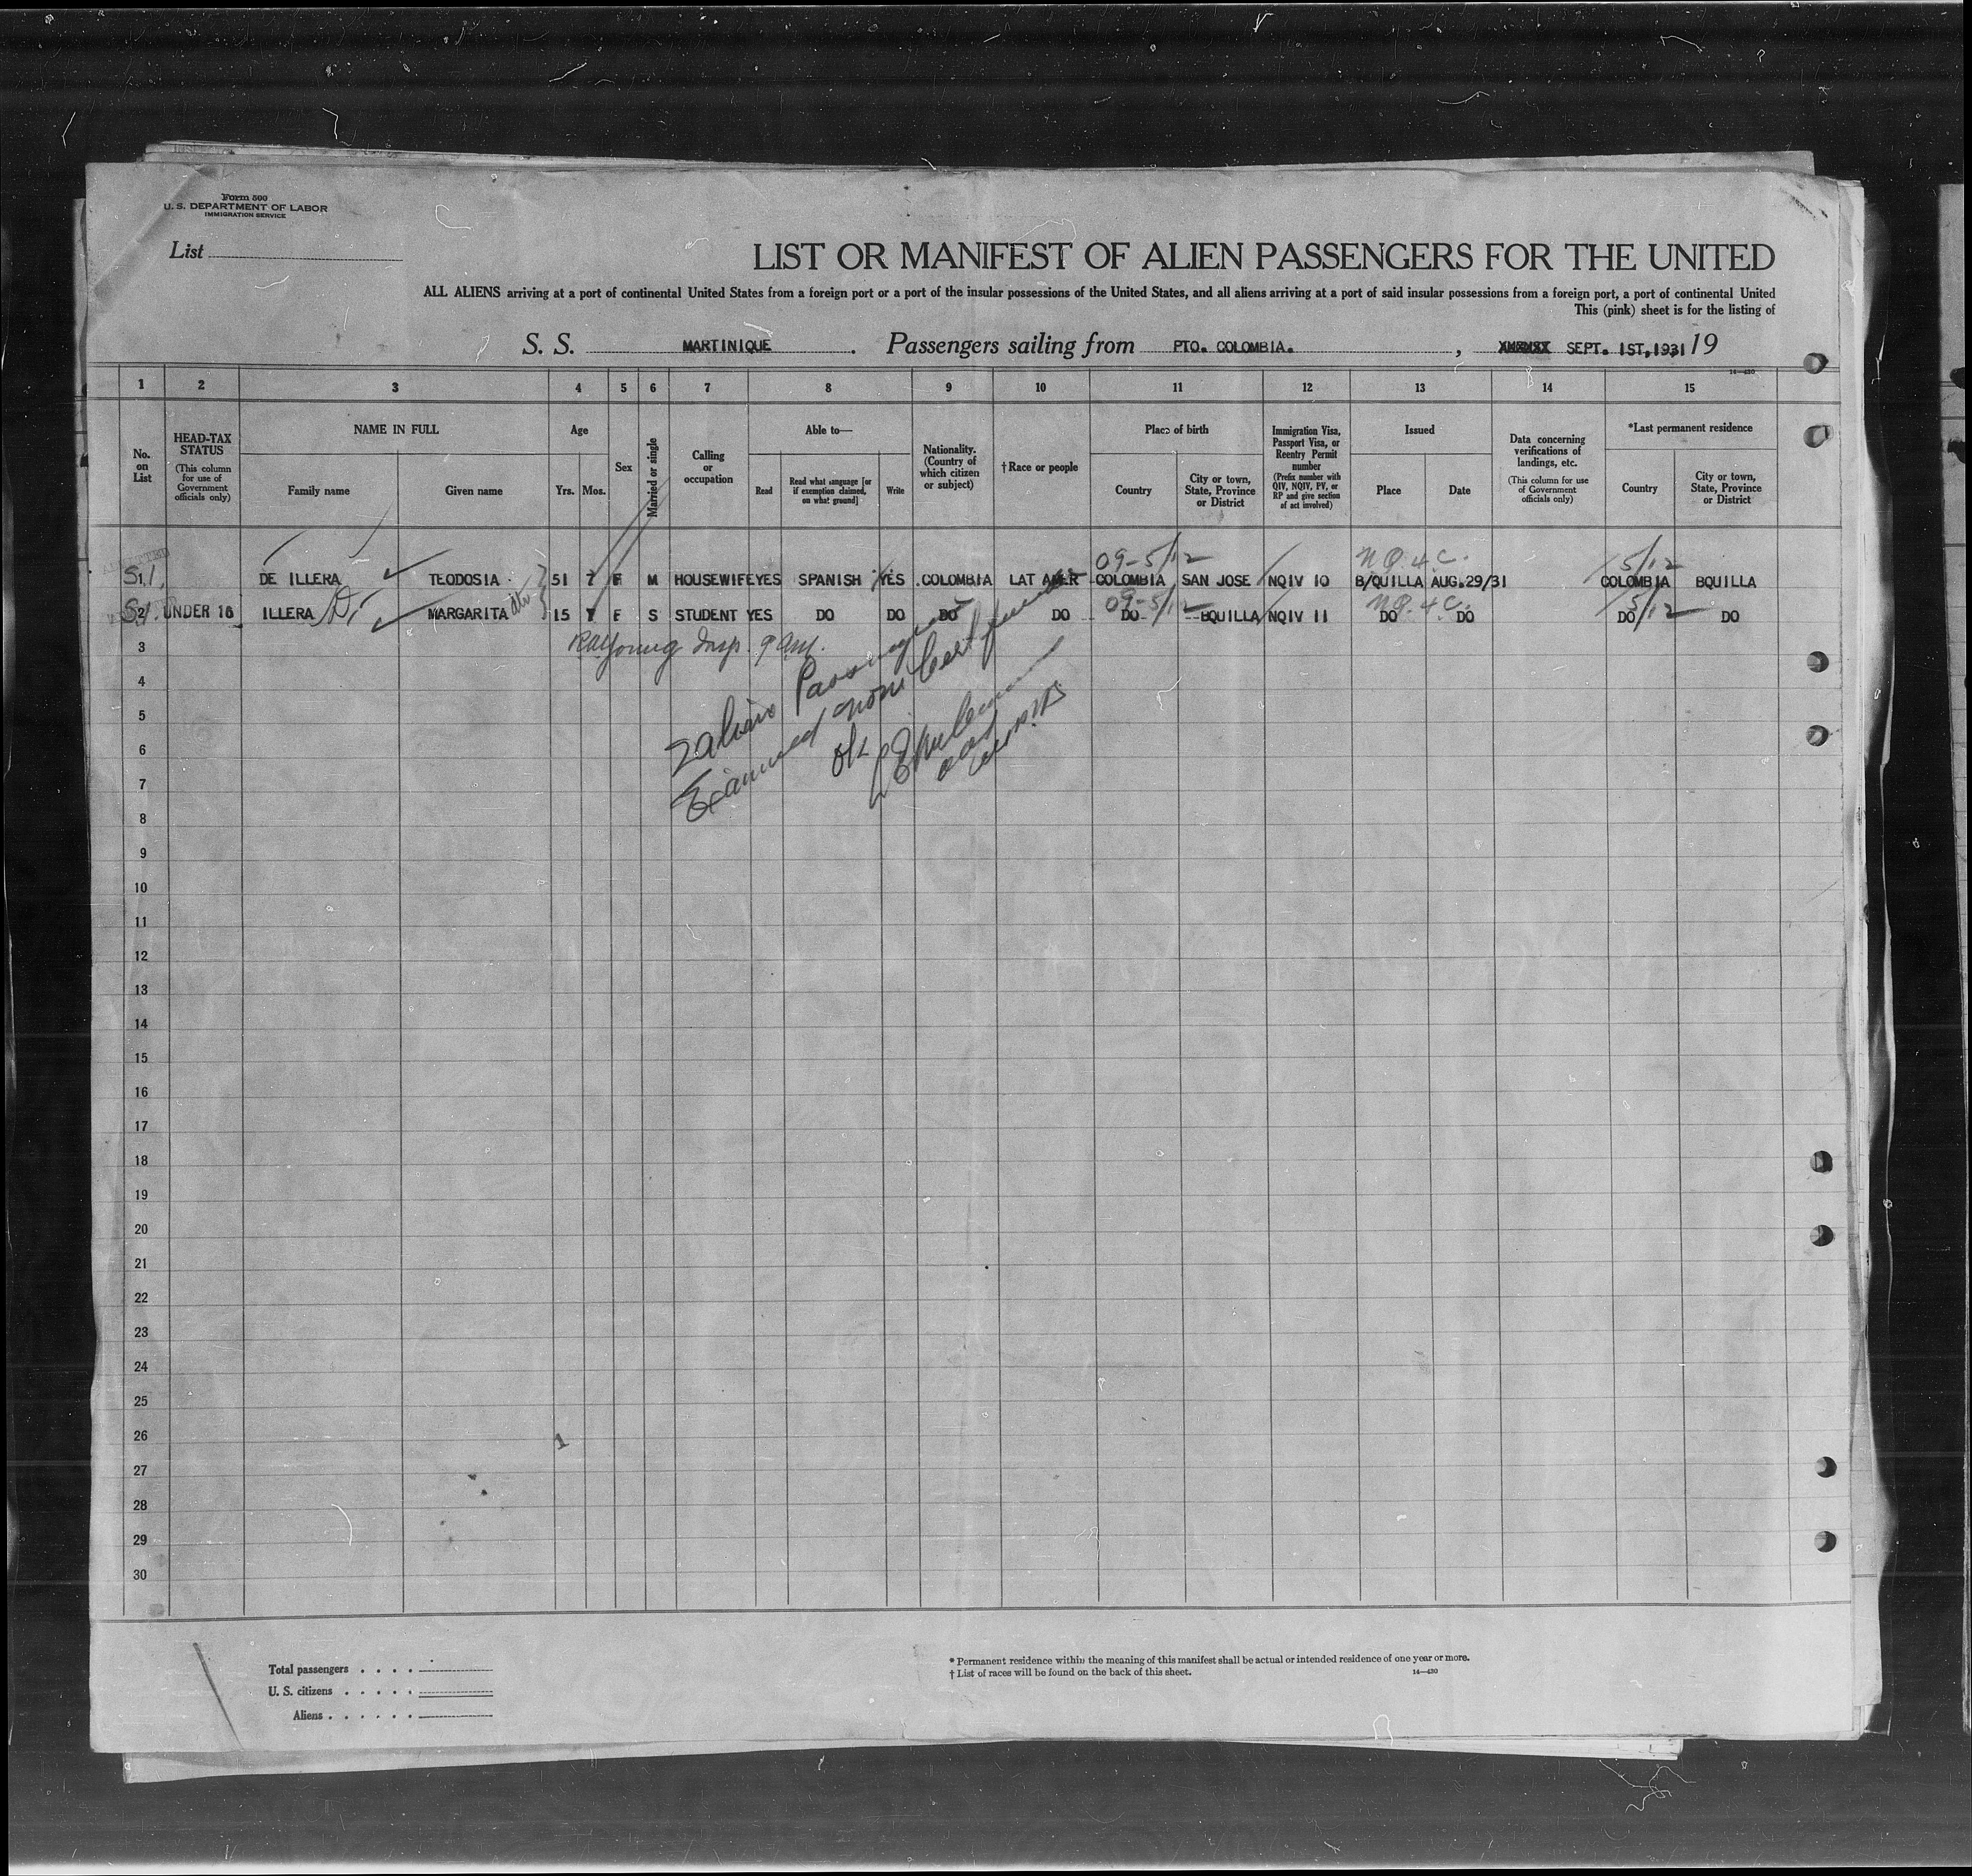 Form 500
U. S. DEPARTMENT OF LABOR
IMMIGRATION SERVICE
List
LIST OR MANIFEST OF ALIEN PASSENGERS FOR THE UNITED
ALL ALIENS arriving at a port of continental United States from a foreign port or a port of the insular possessions of the United States, and all aliens arriving at a port of said insular possessions from a foreign port, a port of continental United
This (pink) sheet is for the listing of
S. S. MARTINIQUE. Passengers sailing from PTO. COLOMBIA., SEPT. 1ST, 1931 19
14—430
1 2 3 4 5 6 7 8 9 10 11 12 13 14 15
No. on List
HEAD-TAX STATUS (This column for use of Government officials only)
NAME IN FULL Family name Given name
Age Yrs. Mos.
Sex
Married or single
Calling or occupation
Able to— Read Read what language [or if exemption claimed, on what ground] Write
Nationality. (Country of which citizen or subject)
†Race or people
Place of birth Country City or town, State, Province or District
Immigration Visa, Passport Visa, or Reentry Permit number (Prefix number with QIV, NQIV, PV, or RP and give section of act involved)
Issued Place Date
Data concerning verifications of landings, etc. (This column for use of Government officials only)
*Last permanent residence Country City or town, State, Province or District
09-5/12 5/12
1 DE ILLERA TEODOSIA 51 7 F M HOUSEWIFE YES SPANISH YES COLOMBIA LAT AMER COLOMBIA SAN JOSE NQIV 10 B/QUILLA AUG.29/31 COLOMBIA BQUILLA
09-5/12 5/12
2 UNDER 16 ILLERA MARGARITA 15 7 F S STUDENT YES DO DO DO DO DO BQUILLA NQIV 11 DO DO DO DO
3 Young Insp. 9 am.
4
5
6
7
8
9
10
11
12
13
14
15
16
17
18
19
20
21
22
23
24
25
26
27
28
29
30
2 alien Passengers
Examined
ok
Total passengers
U. S. citizens
Aliens
* Permanent residence within the meaning of this manifest shall be actual or intended residence of one year or more.
† List of races will be found on the back of this sheet. 14—430